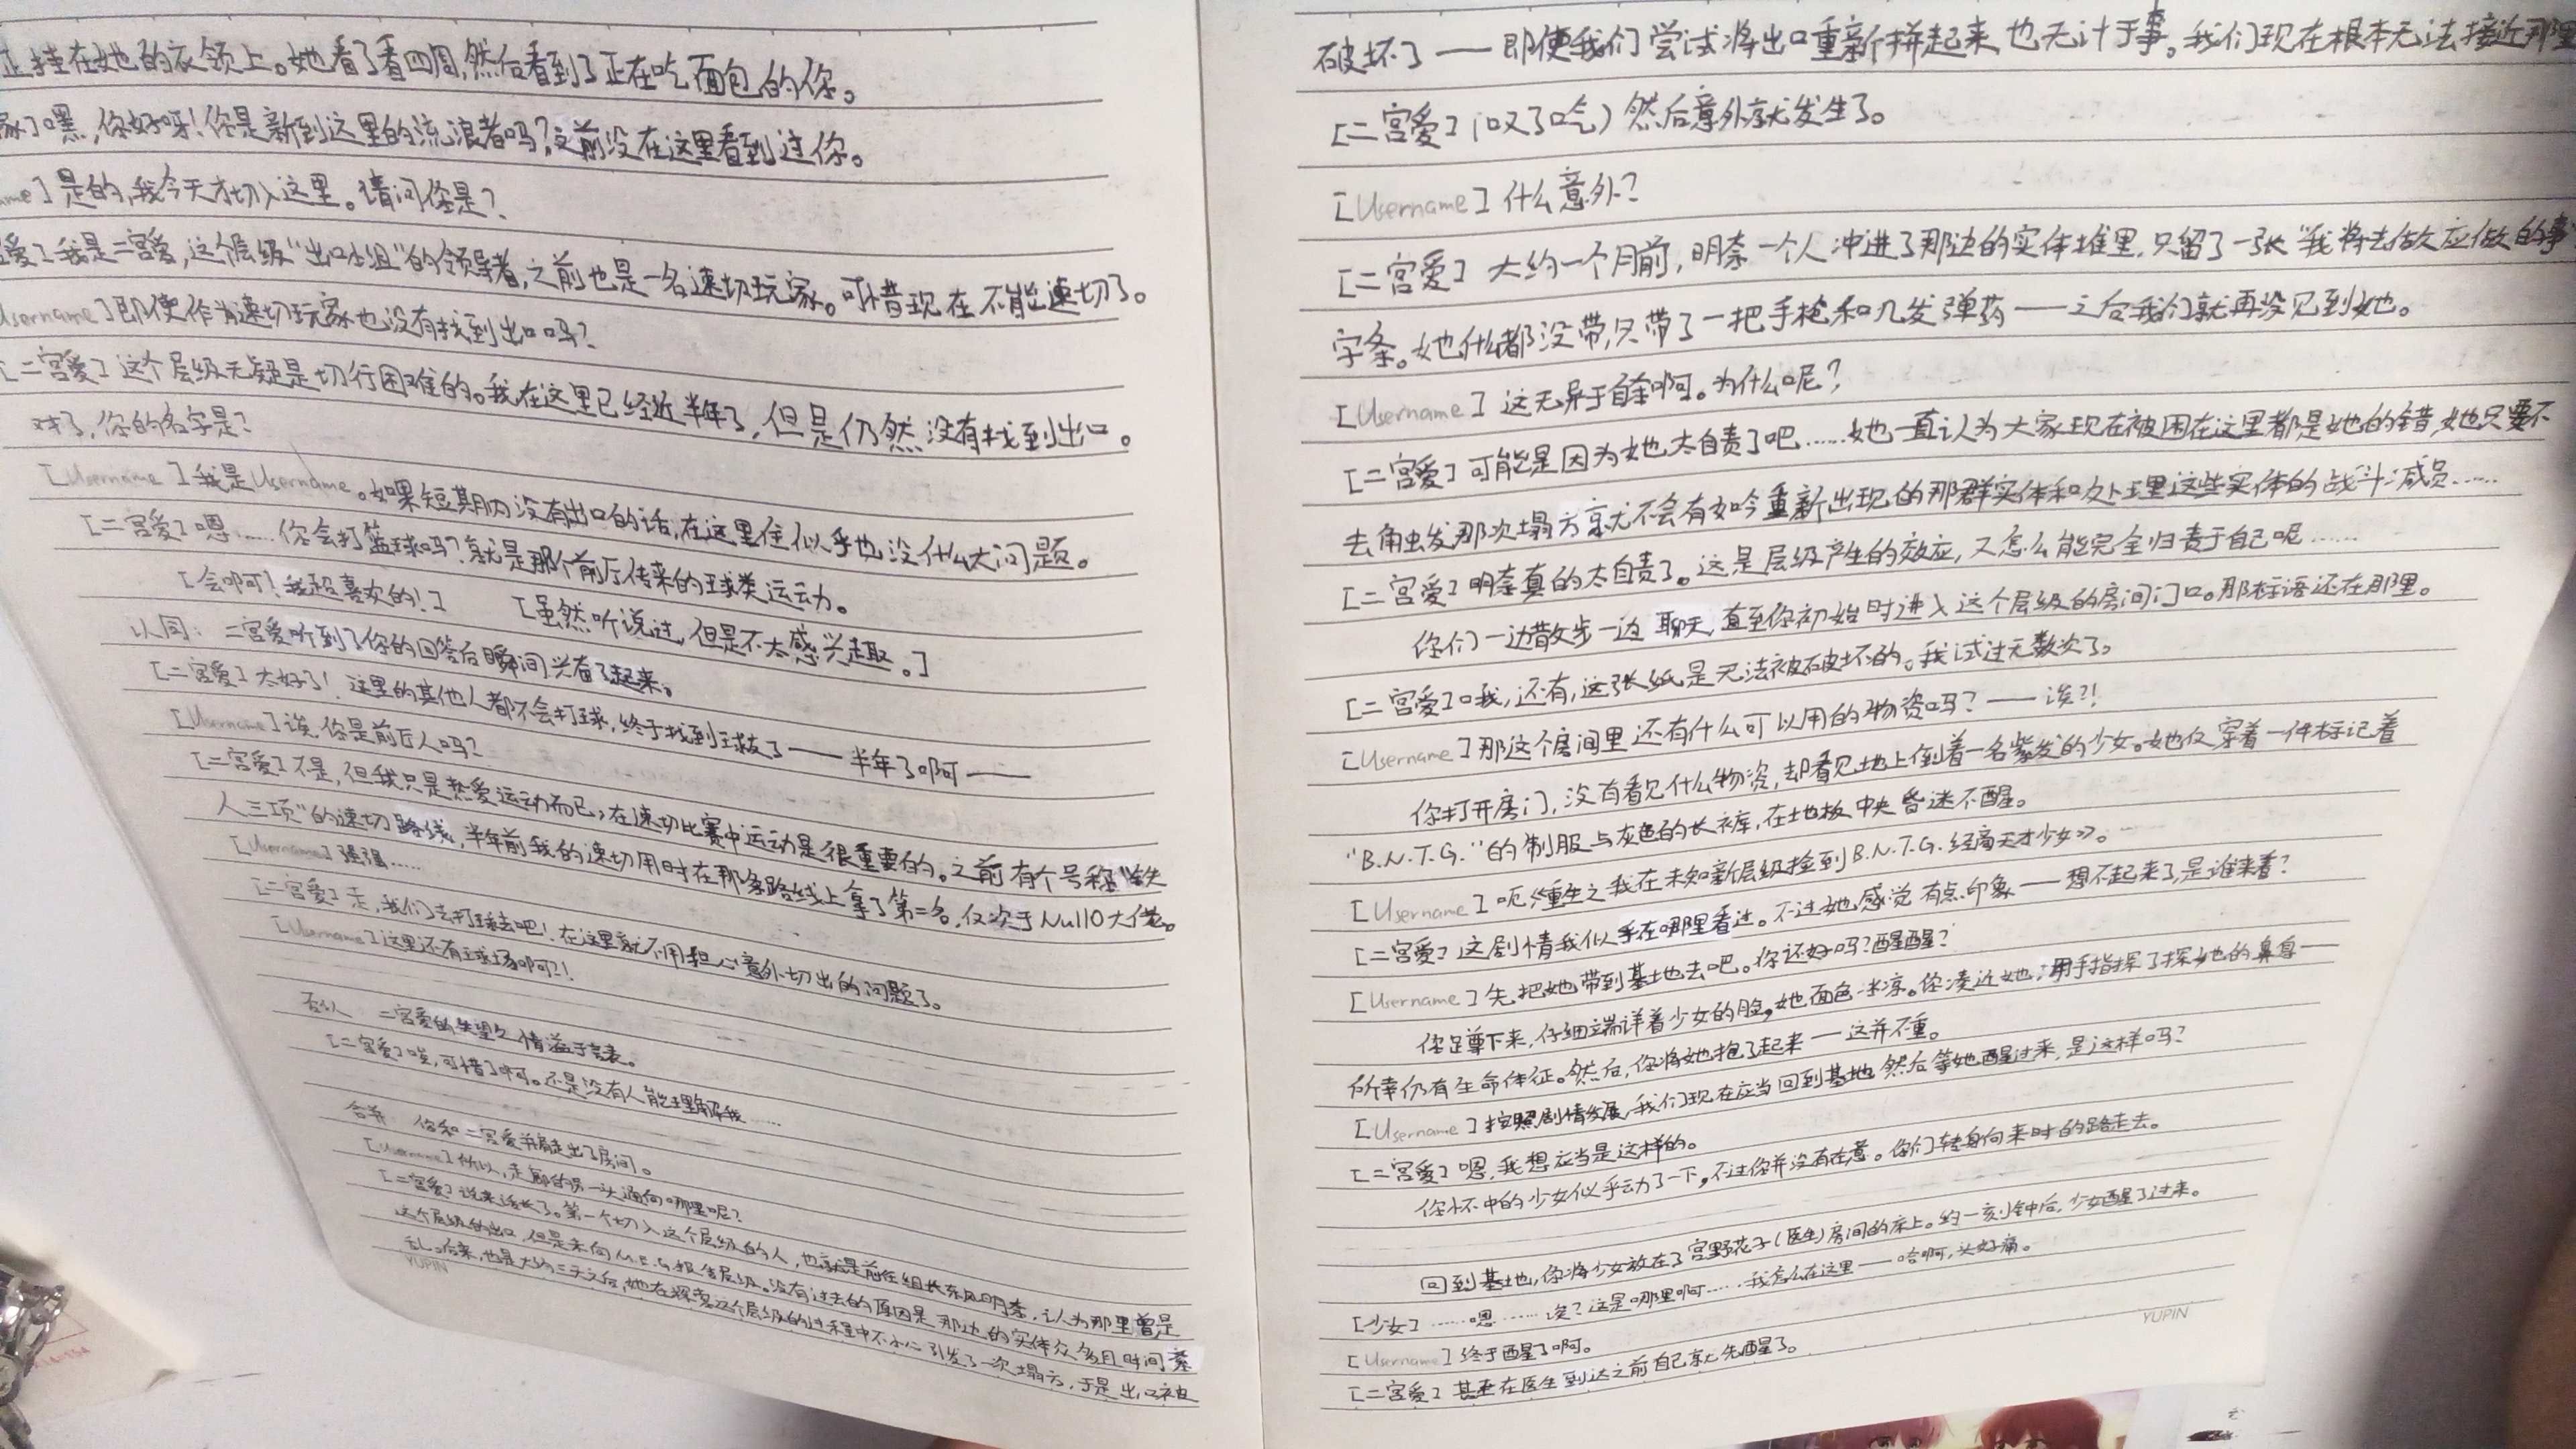 正挂在她的衣领上。她看了看四周,然后看到了正在吃面包的你。
嘿,你好呀!你是新到这里的流浪者吗?之前没在这里看到过你。
me]是的,我今天才切入这里。请问您是?
爱]我是二宫爱,这个层级“出口小组”的领导者,之前也是一名速切玩家。可惜现在不能速切了。
Username]即使作为速切玩家也没有找到出口吗?
[二宫爱]这个层级无疑是切行困难的。我在这里已经近半年了,但是仍然没有找到出口。
对了,你的名字是?
[Username]我是Username。如果短期内没有出口的话,在这里住似乎也没什么大问题。
[二宫爱]嗯……你会打篮球吗?就是那个前厅传来的球类运动。
[会啊!我超喜欢的!] [虽然听说过,但是不太感兴趣。]
认同: 二宫爱听到了你的回答后瞬间兴奋了起来。
[二宫爱]太好了!这里的其他人都不会打球,终于找到球友了——半年了啊——
[Username]诶,你是前厅人吗?
[二宫爱]不是,但我只是热爱运动而已,在速切比赛中运动是很重要的。之前有个号称“铁
人三项”的速切路线,半年前我的速切用时在那条路线上拿了第二名,仅次于Null0大佬。
[Username]强强……
[二宫爱]走,我们去打球去吧!在这里就不用担心意外切出的问题了。
[Username]这里还有球场啊?!
否认 二宫爱的失望之情溢于言表。
[二宫爱]唉,可惜了啊。还是没有人能理解我……
合并: 你和二宫爱并肩走出了房间。
[Username]所以,走廊的另一头通向哪里呢?
[二宫爱]说来话长了。第一个切入这个层级的人,也就是前任组长东风明奈,认为那里曾是
这个层级的出口,但是未向M.E.G.报告层级。没有过去的原因是那边的实体众多且时间紊
乱。后来,也是大约三天之后,她在探索这个层级的过程中不小心引发了一次塌方,于是出口被
YUPIN
破坏了——即使我们尝试将出口重新拼起来也无计于事。我们现在根本无法接近那里
[二宫爱](叹了口气)然后意外就发生了。
[Username]什么意外?
[二宫爱]大约一个月前,明奈一个人冲进了那边的实体堆里,只留了一张“我将去做应做的事”
字条。她什么都没带,只带了一把手枪和几发弹药——之后我们就再没见到她。
[Username]这无异于自杀啊。为什么呢?
[二宫爱]可能是因为她太自责了吧……她一直认为大家现在被困在这里都是她的错,她只要不
去触发那次塌方就不会有如今重新出现的那群实体和处理这些实体的战斗减员……
[二宫爱]明奈真的太自责了。这是层级产生的效应,又怎么能完全归责于自己呢……
你们一边散步一边聊天,直至你初始时进入这个层级的房间门口。那标语还在那里。
[二宫爱]哦,还有,这张纸是无法被破坏的。我试过无数次了。
[Username]那这个房间里还有什么可以用的物资吗?——诶?!
你打开房门,没有看见什么物资,却看见地上倒着一名紫发的少女。她仅穿着一件标记着
“B.N.T.G.”的制服与灰色的长裤,在地板中央昏迷不醒。
[Username]呃,《重生之我在未知新层级捡到B.N.T.G.经商天才少女》。
[二宫爱]这剧情我似乎在哪里看过。不过她感觉有点印象——想不起来了,是谁来着?
[Username]先把她带到基地去吧。你还好吗?醒醒?
你蹲下来,仔细端详着少女的脸,她面色冰凉。你凑近她,用手指探了探她的鼻息——
所幸仍有生命体征。然后,你将她抱了起来——这并不重。
[Username]按照剧情发展,我们现在应当回到基地,然后等她醒过来,是这样吗?
[二宫爱]嗯,我想应当是这样的。
你怀中的少女似乎动了一下,不过你并没有在意。你们转身向来时的路走去。
回到基地,你将少女放在了宫野花子(医生)房间的床上。约一刻钟后,少女醒了过来。
[少女]……嗯……诶?这是哪里啊……我怎么在这里——哈啊,头好痛。
[Username]终于醒了啊。
[二宫爱]甚至在医生到达之前自己就先醒了。
YUPIN